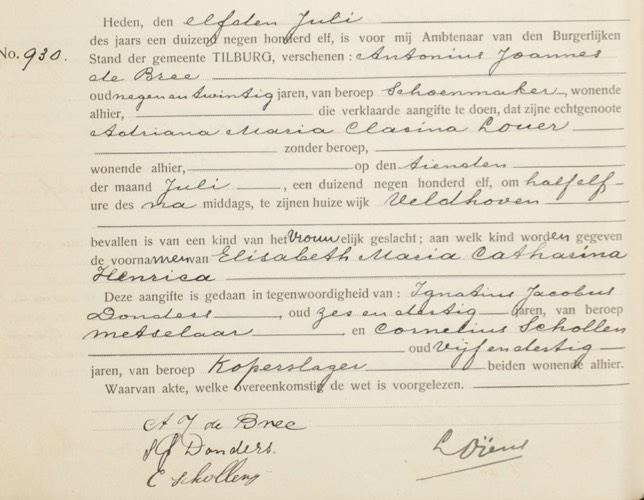 Heden, den elfden Juli
des jaars een duizend negen honderd elf, is voor mij Ambtenaar van den Burgerlijken
No. 930. Stand der gemeente TILBURG, verschenen: Antonius Joannes
de Bree
oud negen en twintig jaren, van beroep Schoenmaker, wonende
alhier, die verklaarde aangifte te doen, dat zijne echtgenoote
Adriana Maria Clasina Louer
zonder beroep,
wonende alhier, op den tienden
der maand Juli, een duizend negen honderd elf, om half elf
ure des na middags, te zijnen huize wijk Veldhoven
bevallen is van een kind van het Vrouwelijk geslacht; aan welk kind worden gegeven
de voornamen van Elisabeth Maria Catharina
Henrica
Deze aangifte is gedaan in tegenwoordigheid van: Ignatius Jacobus
Donders, oud zes en dertig jaren, van beroep
metselaar en Cornelius Schollen
oud Vijf en dertig
jaren, van beroep Koperslager beiden wonende alhier.
Waarvan akte, welke overeenkomstig de wet is voorgelezen.
A J de Bree
Donders.
C Schollens